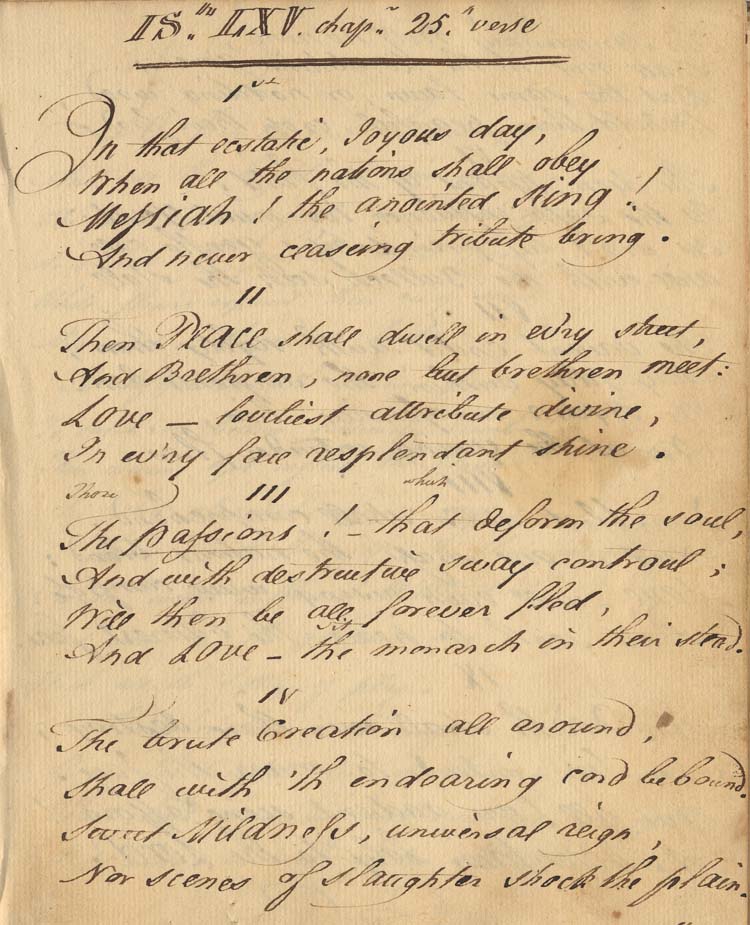 IS.ah LXV. chap.r 25.h verse
1st
In that ecstatic, Joyous day,
When all the nations shall obey
Messiah! the anointed King!
And never ceaseing tribute bring.
II
Then PEACE shall dwell in ev'ry street,
And Brethren, none but brethren meet:
LOVE — loveliest attribute divine,
In ev'ry face resplendant shine.
Those which
III
The Passions! – that deform the soul,
And with destructive sway controul;
Will then be all forever fled,
sit
And LOVE – the monarch in their stead.
IV
The brute Creation all around,
Shall with 'th endearing cord be bound.
Sweet Mildness, universal reign,
Nor scenes of slaughter shock the plain.